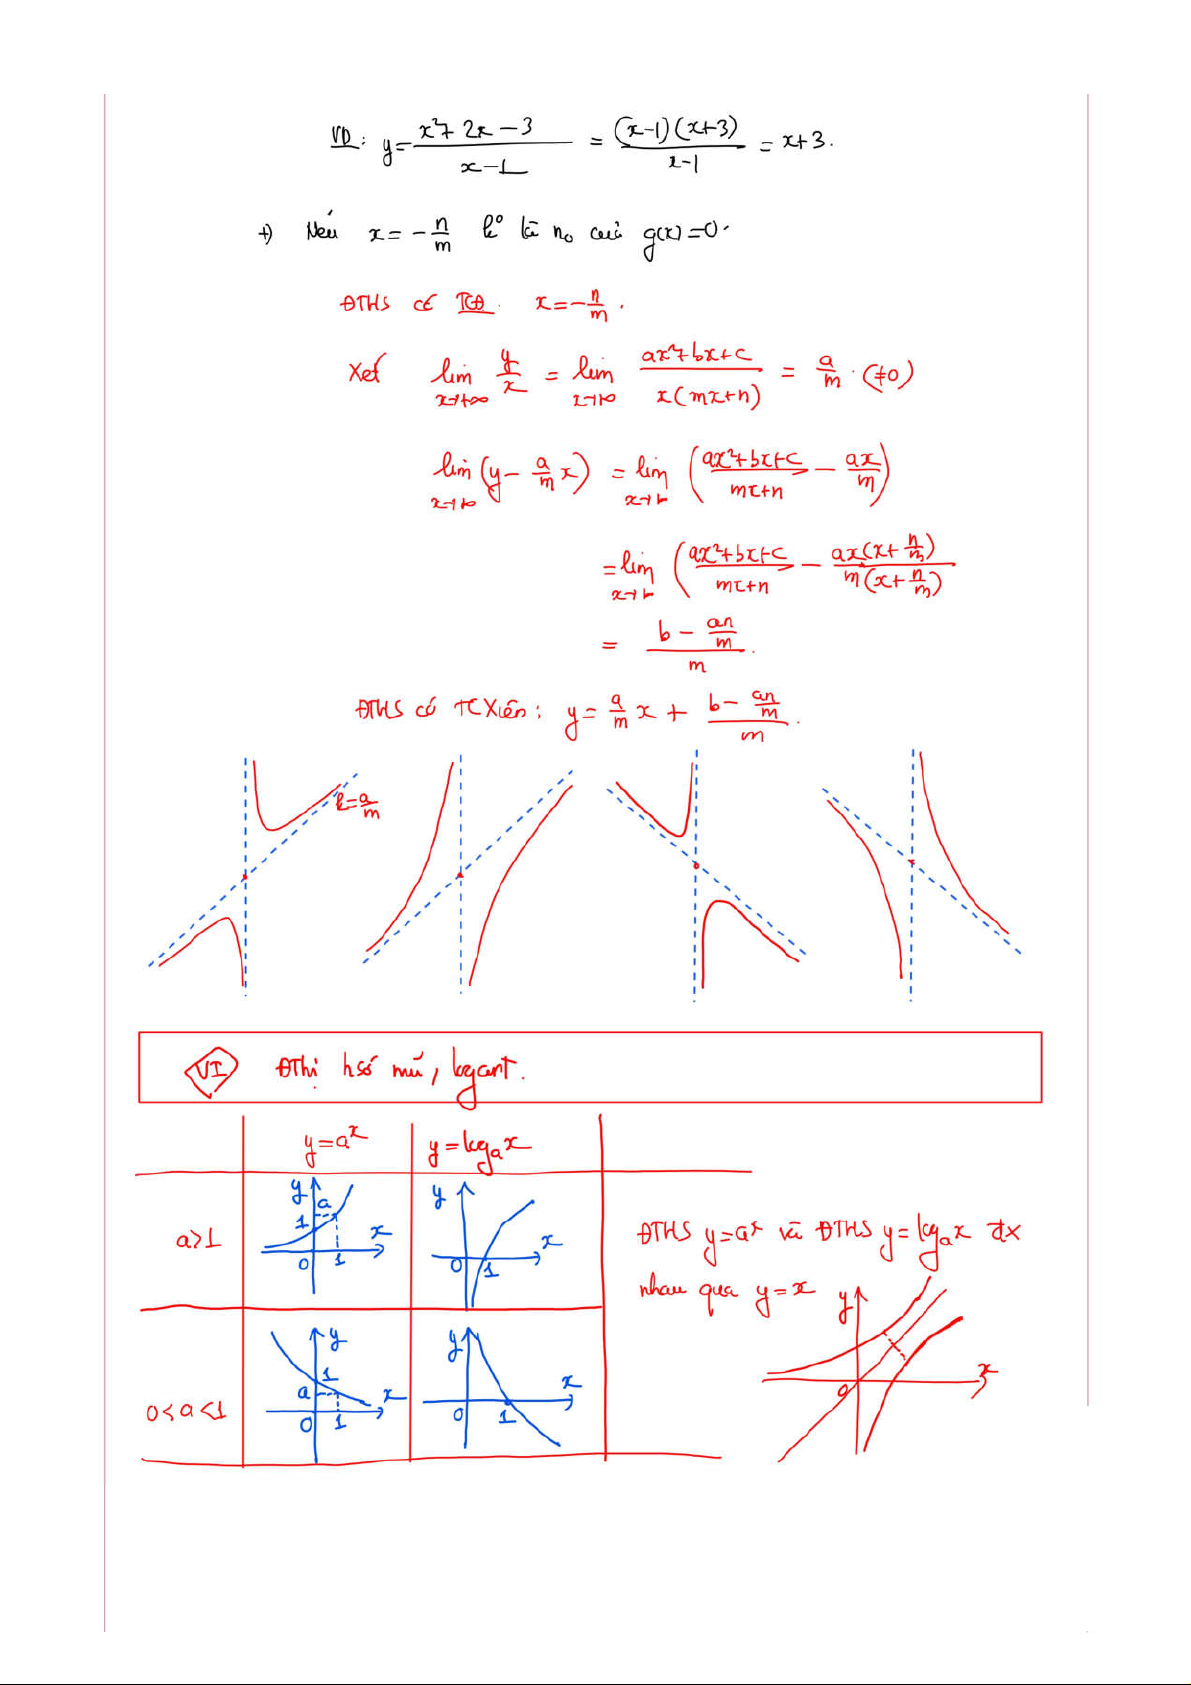 VD: y = (x² + 2x − 3)/(x − 1) = (x−1)(x+3)/(x−1) = x+3.
+) Nếu x = −n/m k° là n₀ của g(x)=0.
ĐTHS có TCĐ. x = −n/m.
Xét lim x→+∞ y/x = lim x→+∞ (ax²+bx+c)/(x(mx+n)) = a/m. (≠0)
lim x→+∞ (y − a/m x) = lim x→+ ((ax²+bx+c)/(mx+n) − ax/m)
= lim x→+ ((ax²+bx+c)/(mx+n) − ax(x+n/m)/(m(x+n/m))
= (b − an/m)/m.
ĐTHS có TCXiên: y = a/m x + (b − an/m)/m.
k=a/m
VI Đthị hsố mũ, logarit.
y=aˣ y=logₐx
a>1
y a 1 x 0 1
y x 0 1
ĐTHS y=aˣ và ĐTHS y=logₐx đx
nhau qua y=x
y x 0
0<a<1
y 1 a x 0 1
y x 0 1